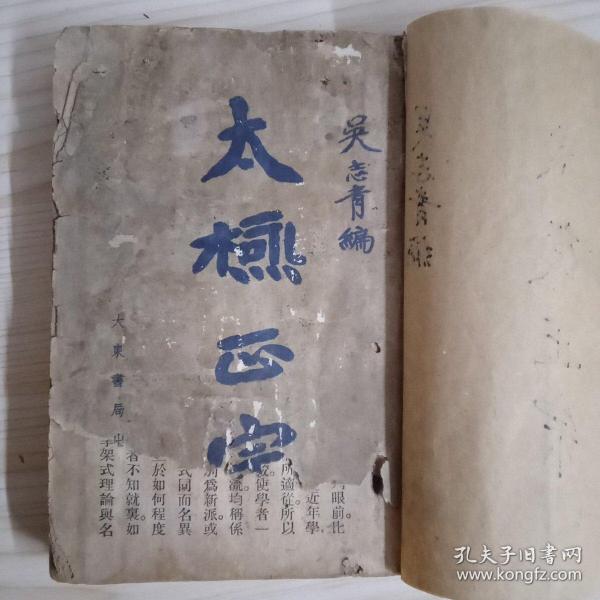 吳志青編
太極正宗
大東書局出
眼前北
近年學
所適從所以
使學者一
流均稱係
爲新派或
式同而名異
於如何程度
者不知就裏如
學架式理論與名
孔夫子旧书网
www.kongfz.com